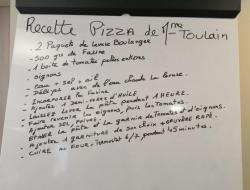 Recette Pizza de Mme Toulain
- 2 Paquets de levure Boulanger
- 500 gr de Farine
- 1 boite de tomates pelées entières
- oignons
- eau - sel - ail
- Délayer avec de l'eau chaude la levure.
- Incorporer la Farine
- Ajouter 1 demi-verre d'huile.
- Laisser lever la pâte pendant 1 heure.
- Faire revenir les oignons, puis les tomates.
- Ajouter sel, poivre, ail
- Étaler la pâte et la garnir de tomates et d'oignons.
- Ajouter 1 garniture de son choix + gruyère rapé.
- Cuire au four - thermostat 6/7 pendant 45 minutes.